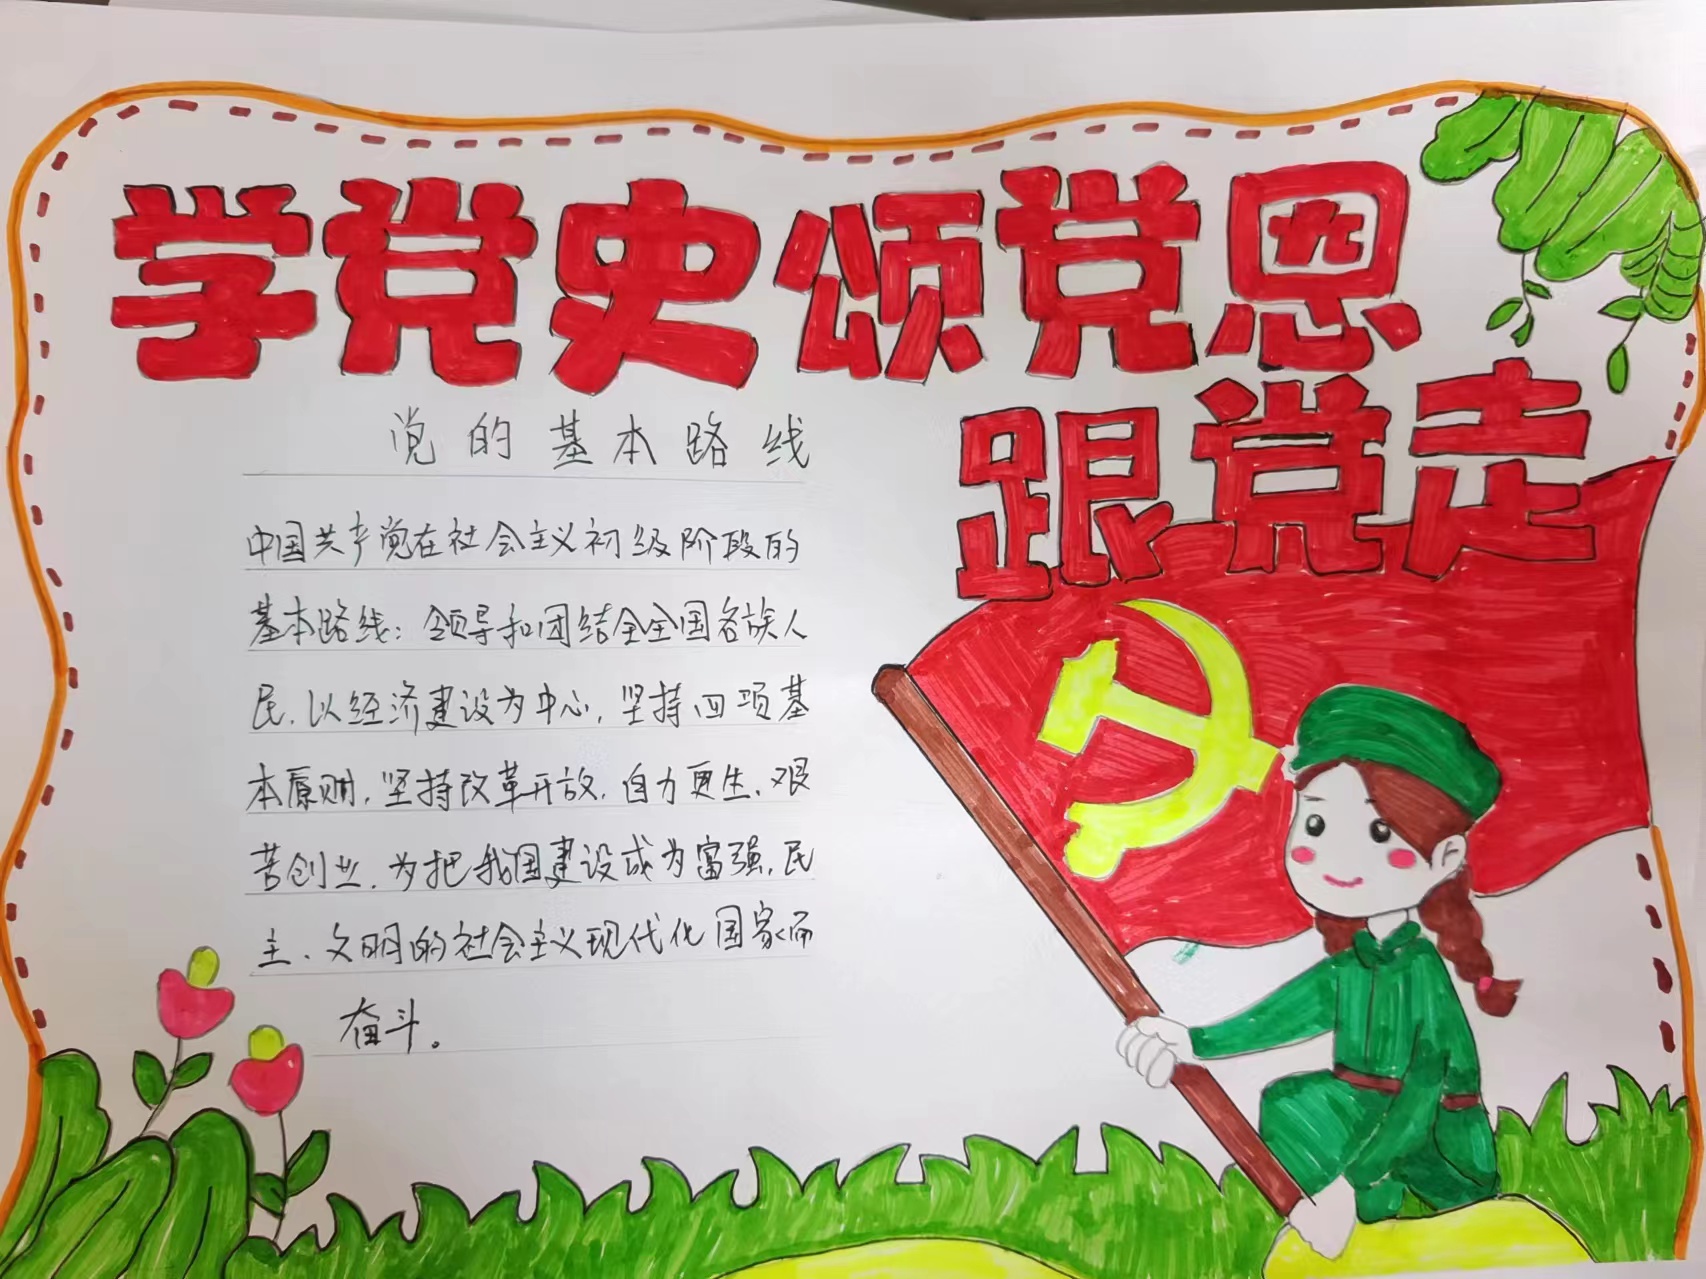 学党史颂党恩
跟党走
党的基本路线
中国共产党在社会主义初级阶段的
基本路线：领导和团结全全国各族人
民，以经济建设为中心，坚持四项基
本原则，坚持改革开放，自力更生，艰
苦创业，为把我国建设成为富强，民
主、文明的社会主义现代化国家而
奋斗。